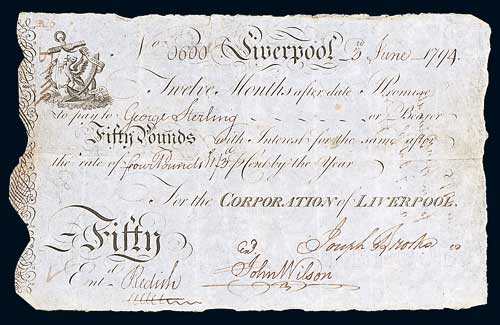 No 3600 Liverpool 3d June 1794.
Twelve Months after date I Promise
to pay to George Sterling or Bearer
Fifty Pounds with Interest for the same after
the rate of four Pounds Cent by the Year
For the CORPORATION of LIVERPOOL.
Fifty
Joseph Brooks
Entd Redish
John Wilson